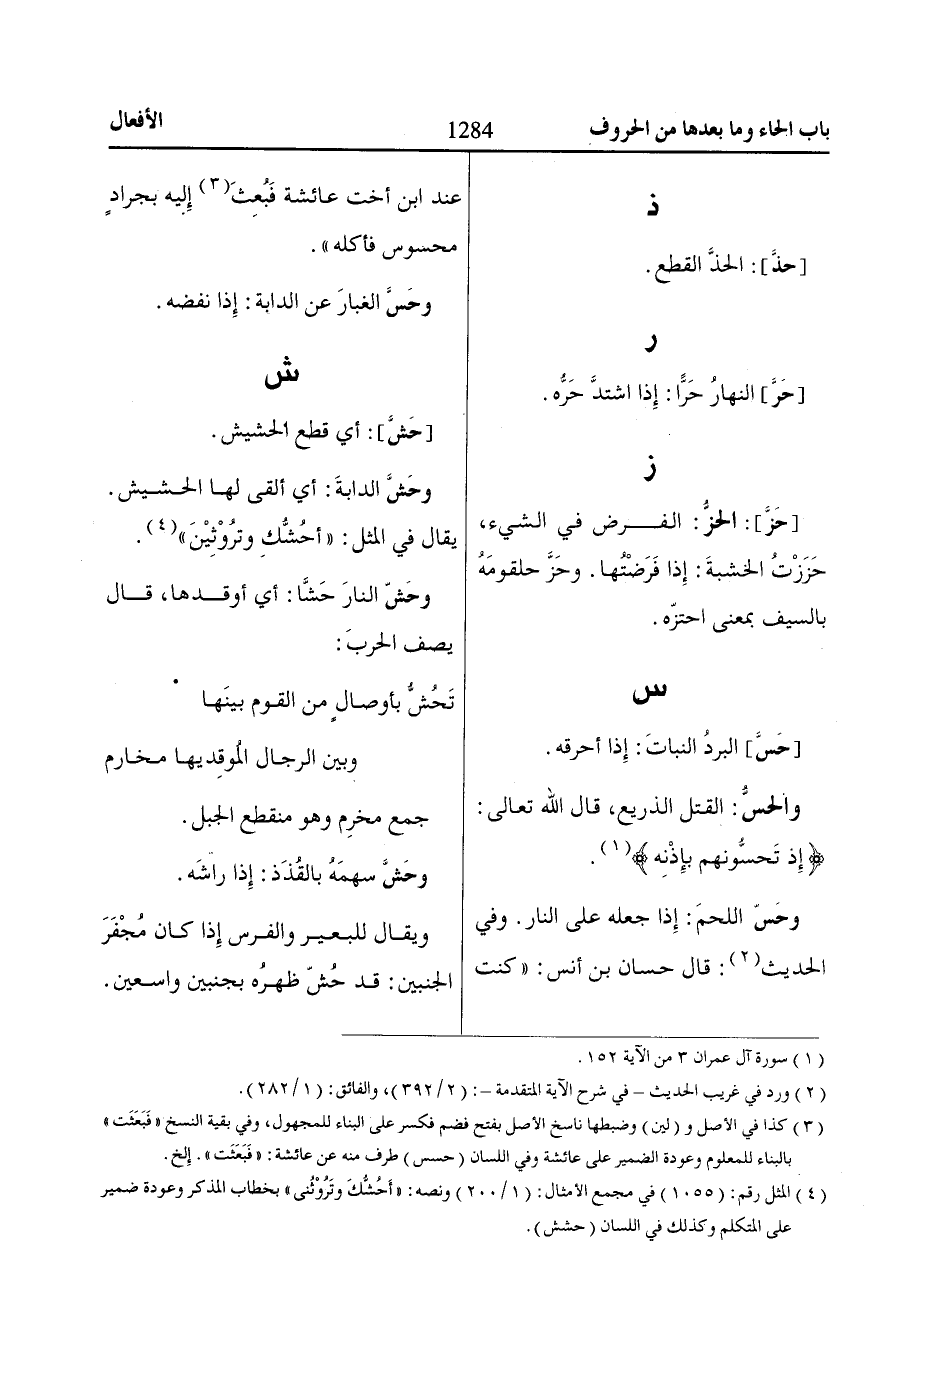 باب الحاء وما بعدها من الحروف
1284
الأفعال
ذ
[حذَّ]: الحذُّ القطع.
ر
[حَرَّ] النهارُ حَرًّا: إذا اشتدَّ حَرُّه.
ز
[حَزَّ]: الحزُّ: الفـــرض في الشيء،
حَزَزْتُ الخشبةَ: إذا فَرَضْتُها. وحَزَّ حلقومَهُ
بالسيف بمعنى احتزّه.
س
[حَسَّ] البردُ النباتَ: إذا أحرقه.
والحَسُّ: القتل الذريع، قال الله تعالى:
﴿إذ تَحسُّونهم بإذْنه﴾(١).
وحَسّ اللحمَ: إذا جعله على النار. وفي
الحديث(٢): قال حسان بن أنس: «كنت
عند ابن أخت عائشة فَبُعِثَ(٣) إليه بجرادٍ
محسوس فأكله».
وحَسَّ الغبارَ عن الدابة: إذا نفضه.
ش
[حَشَّ]: أي قطع الحشيش.
وحَشَّ الدابةَ: أي ألقى لها الحشيش.
يقال في المثل: «أحُشُّكِ وترُوْثيْنَ»(٤).
وحَشّ النارَ حَشًّا: أي أوقدها، قال
يصف الحربَ:
تَحُشُّ بأوصالٍ من القوم بينَها
وبين الرجال المُوقِديها مخارم
جمع مخرِم وهو منقطع الجبل.
وحَشَّ سهمَهُ بالقُذَذ: إذا راشَه.
ويقال للبعير والفرس إذا كان مُجْفَرَ
الجنبين: قد حُشّ ظهرُه بجنبين واسعين.
(١) سورة آل عمران ٣ من الآية ١٥٢.
(٢) ورد في غريب الحديث – في شرح الآية المتقدمة –: (٢/٣٩٢)، والفائق: (١/٢٨٢).
(٣) كذا في الأصل و (لين) وضبطها ناسخ الأصل بفتح فضم فكسر على البناء للمجهول، وفي بقية النسخ «فَبَعَثَت»
بالبناء للمعلوم وعودة الضمير على عائشة وفي اللسان (حسس) طرف منه عن عائشة: «فَبَعَثَت». إلخ.
(٤) المثل رقم: (١٠٥٥) في مجمع الأمثال: (١/٢٠٠) ونصه: «أحُشُّكَ وتَرُوْثُني» بخطاب المذكر وعودة ضمير
على المتكلم وكذلك في اللسان (حشش).